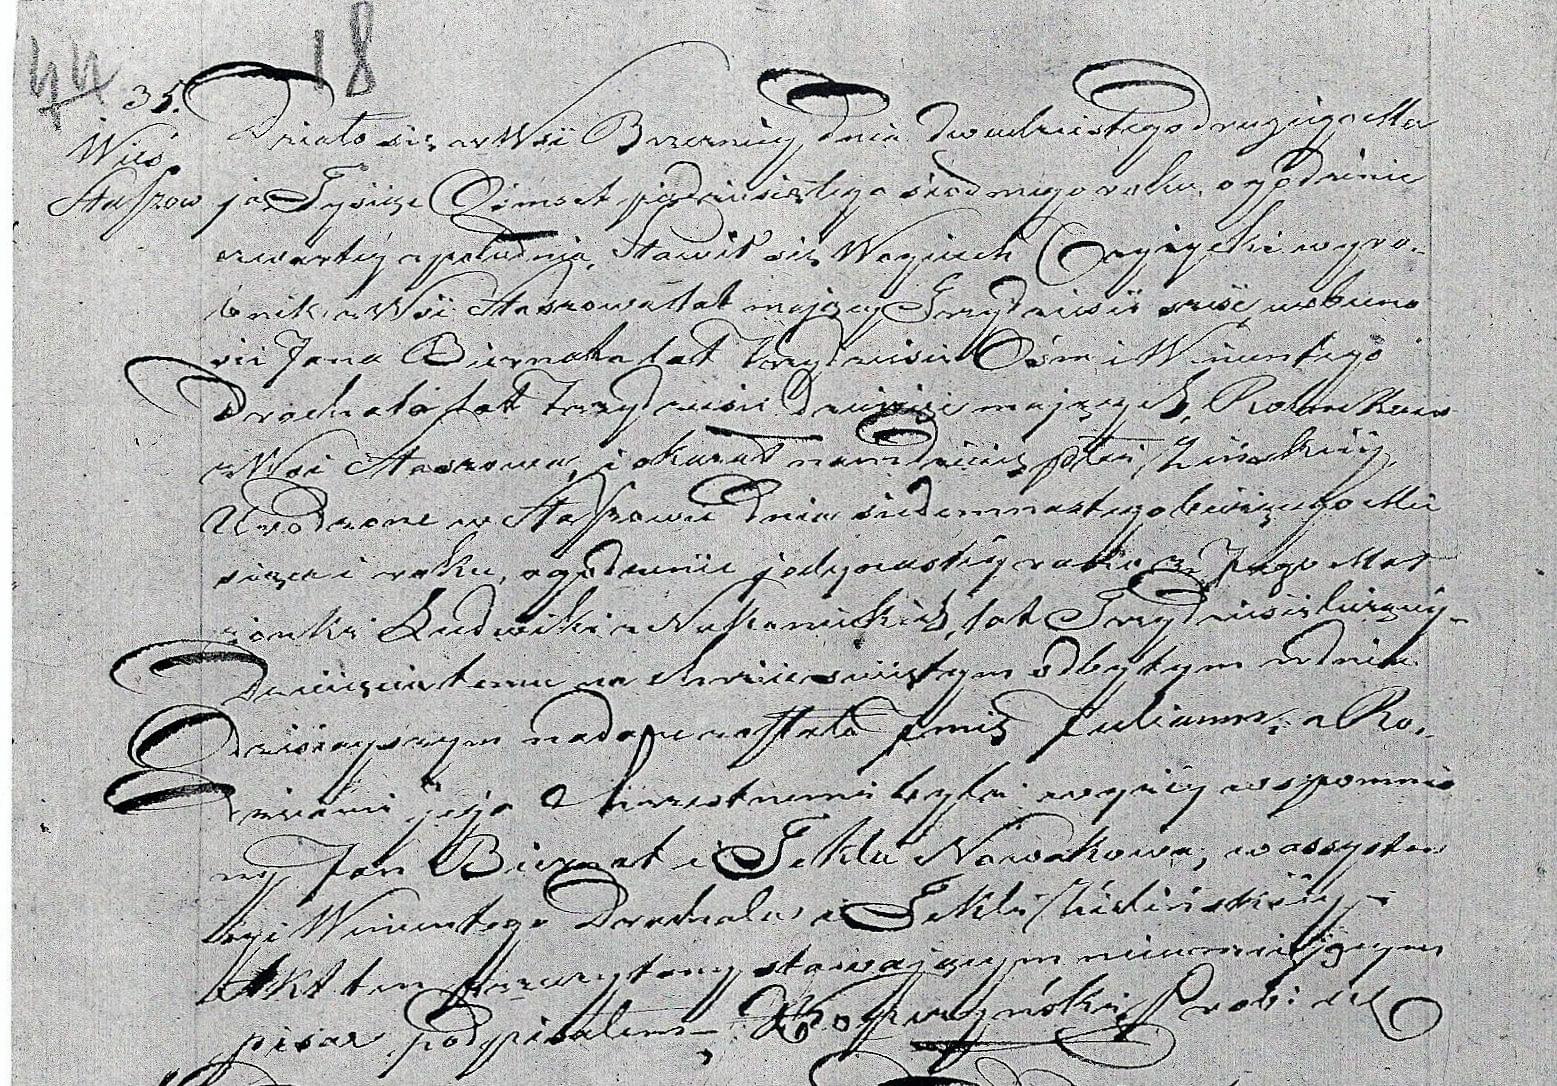 44 18
35.
Wieś
Staszow
Działo się w Wsi Brzeznicy dnia dwudziestego drugiego Ma
ja Tysiąc Ośmset pięćdziesiątego siodmego roku, o godzinie
czwartéy z południa, Stawił się Woyciech wyro-
bnik z Wsi Staszowa lat maiący Trzydzieści sześć, w obecno
ści Jana Biernata lat Trzydzieści Ośm i Wincentego
Drachala lat Trzydzieści Dziewięć maiących, Rolnikow
z Wsi Staszowa, i okazał nam Dziecię płci Żeńskiéy,
Urodzone w Staszowie dnia siedemnastego bieżącego Mie
siąca i roku, o godzinie jedynastéy rano z Jego Mał
żonki Ludwiki z lat Trzydzieści liczącéy-
Dziecięciu temu na Chrzcie świętym odbytym w dniu
dzisieyszym nadane zostało Imię Julianna, a Ro-
dzicami jego Chrzestnemi byli wyżéy wspomnio
ny Jan Biernat i Tekla Nowakowa, w assysten
cyi Wincentego Drachala i Tekli
Akt ten przeczytany stawaiącym nieumieiącym
pisać podpisałem-